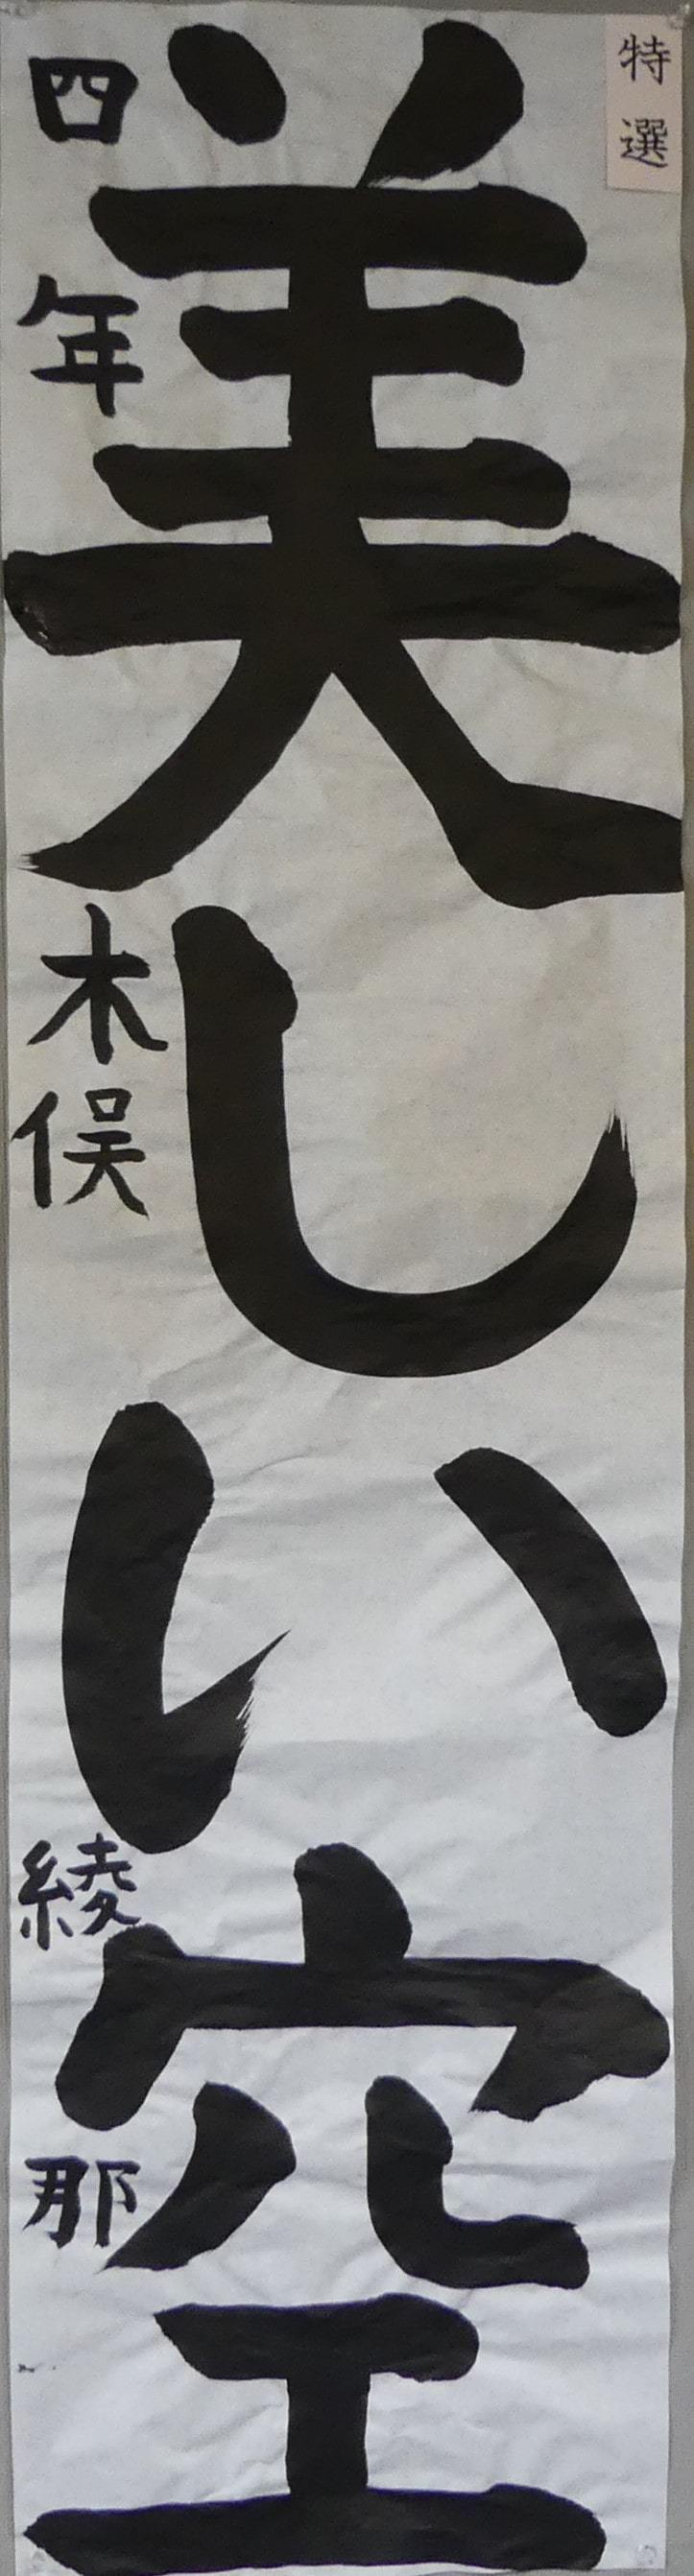 特選
美しい空
四年 木俣 綾那